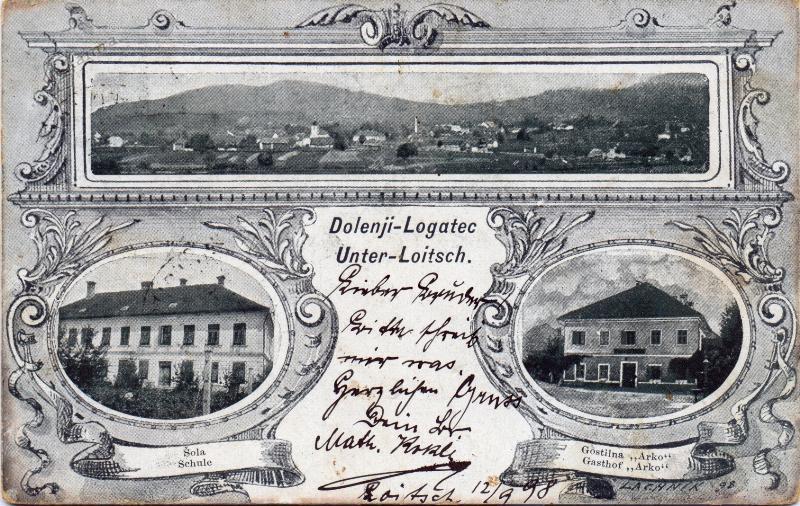 Dolenji-Logatec
Unter-Loitsch.
Lieber Bruder
Bitte schreib
mir was.
Herzlichen Gruss
Dein Br
Math.
Loitsch. 12/9 98
Šola
Schule
Gostilna „Arko“
Gasthof „Arko“
LACHNER 98